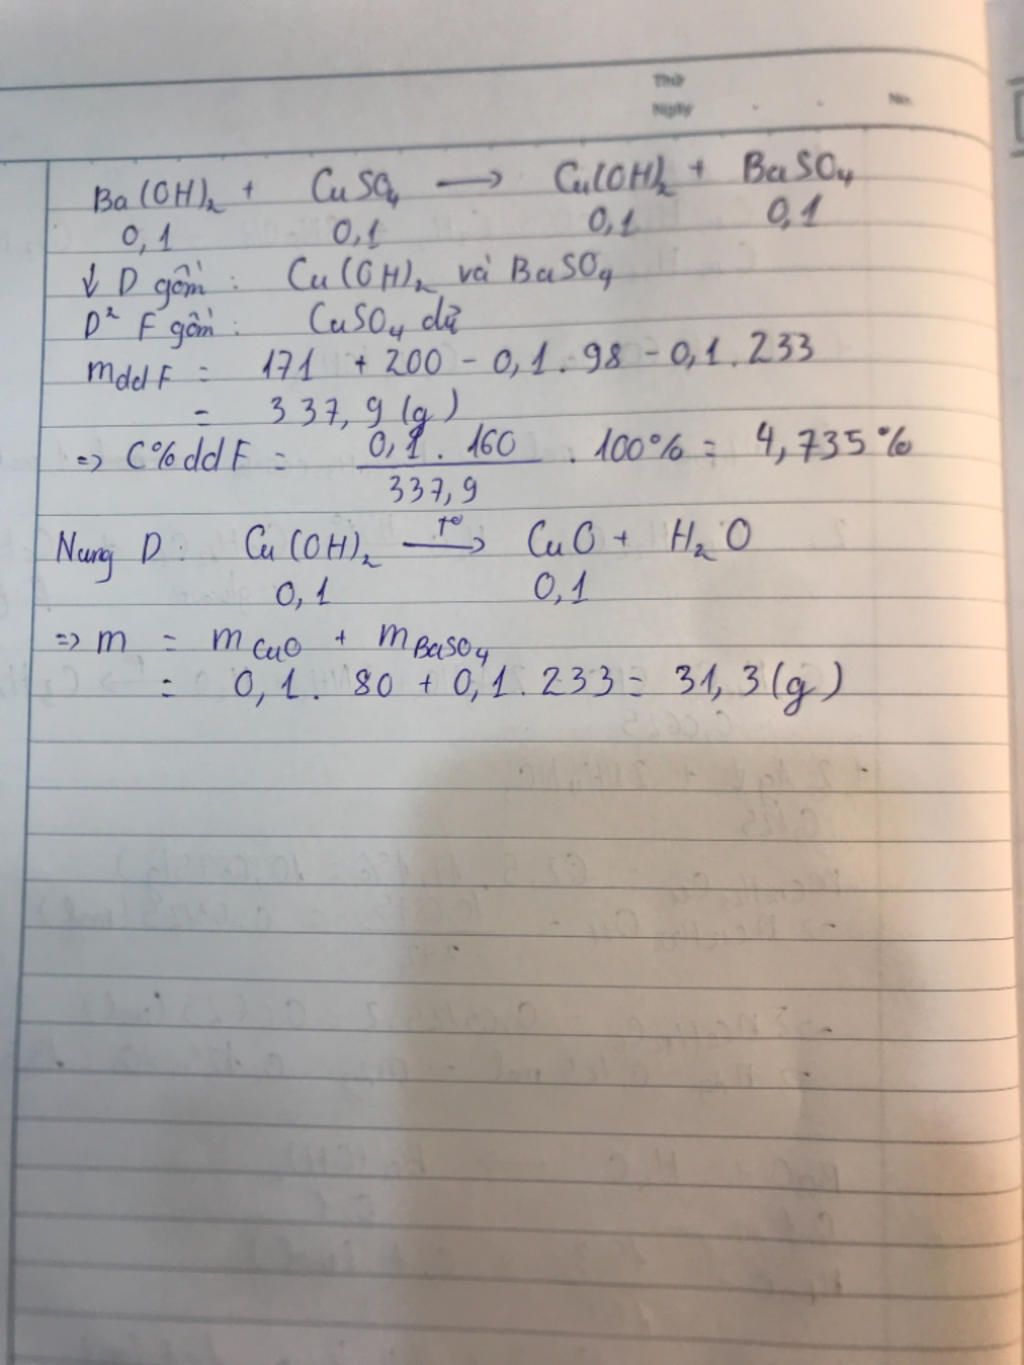 Thứ
Ngày . . No.
Ba(OH)₂ + CuSO₄ → Cu(OH)₂ + BaSO₄
0,1 0,1 0,1 0,1
↓ D gồm : Cu(OH)₂ và BaSO₄
D² F gồm : CuSO₄ dư
mddF = 171 + 200 - 0,1 . 98 - 0,1 . 233
= 337,9 (g)
=> C%ddF = 0,1 . 160 / 337,9 . 100% = 4,735%
Nung D : Cu(OH)₂ –t°→ CuO + H₂O
0,1 0,1
=> m = mCuO + mBaSO₄
= 0,1 . 80 + 0,1 . 233 = 31,3 (g)